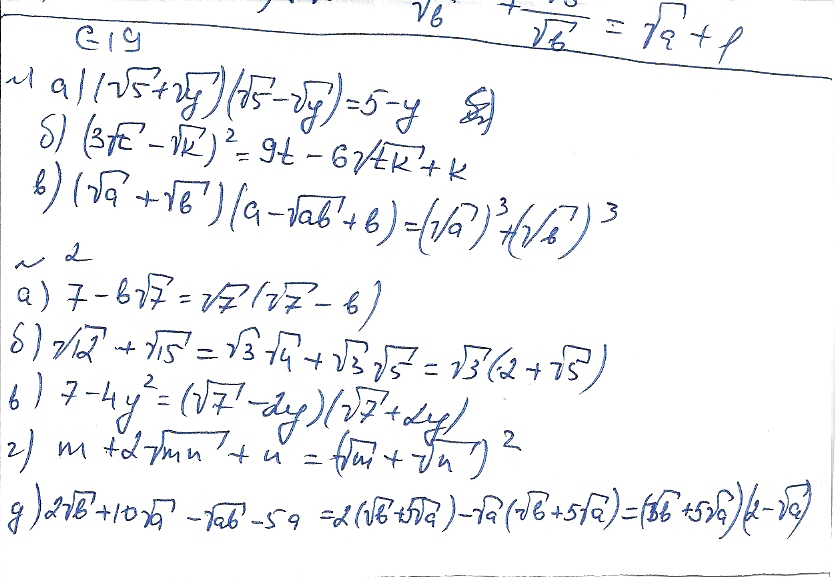 √в + √в = √a + 1
С-19
№1 а) (√5 + √y)(√5 - √y) = 5 - y
б) (3√t - √k)² = 9t - 6√tk + k
в) (√a + √b)(a - √ab + b) = (√a)³ + (√b)³
№ 2
а) 7 - b√7 = √7(√7 - b)
б) √12 + √15 = √3 √4 + √3 √5 = √3(2 + √5)
в) 7 - 4y² = (√7 - 2y)(√7 + 2y)
г) m + 2√mn + n = (√m + √n)²
д) 2√b + 10√a - √ab - 5a = 2(√b + 5√a) - √a(√b + 5√a) = (√b + 5√a)(2 - √a)